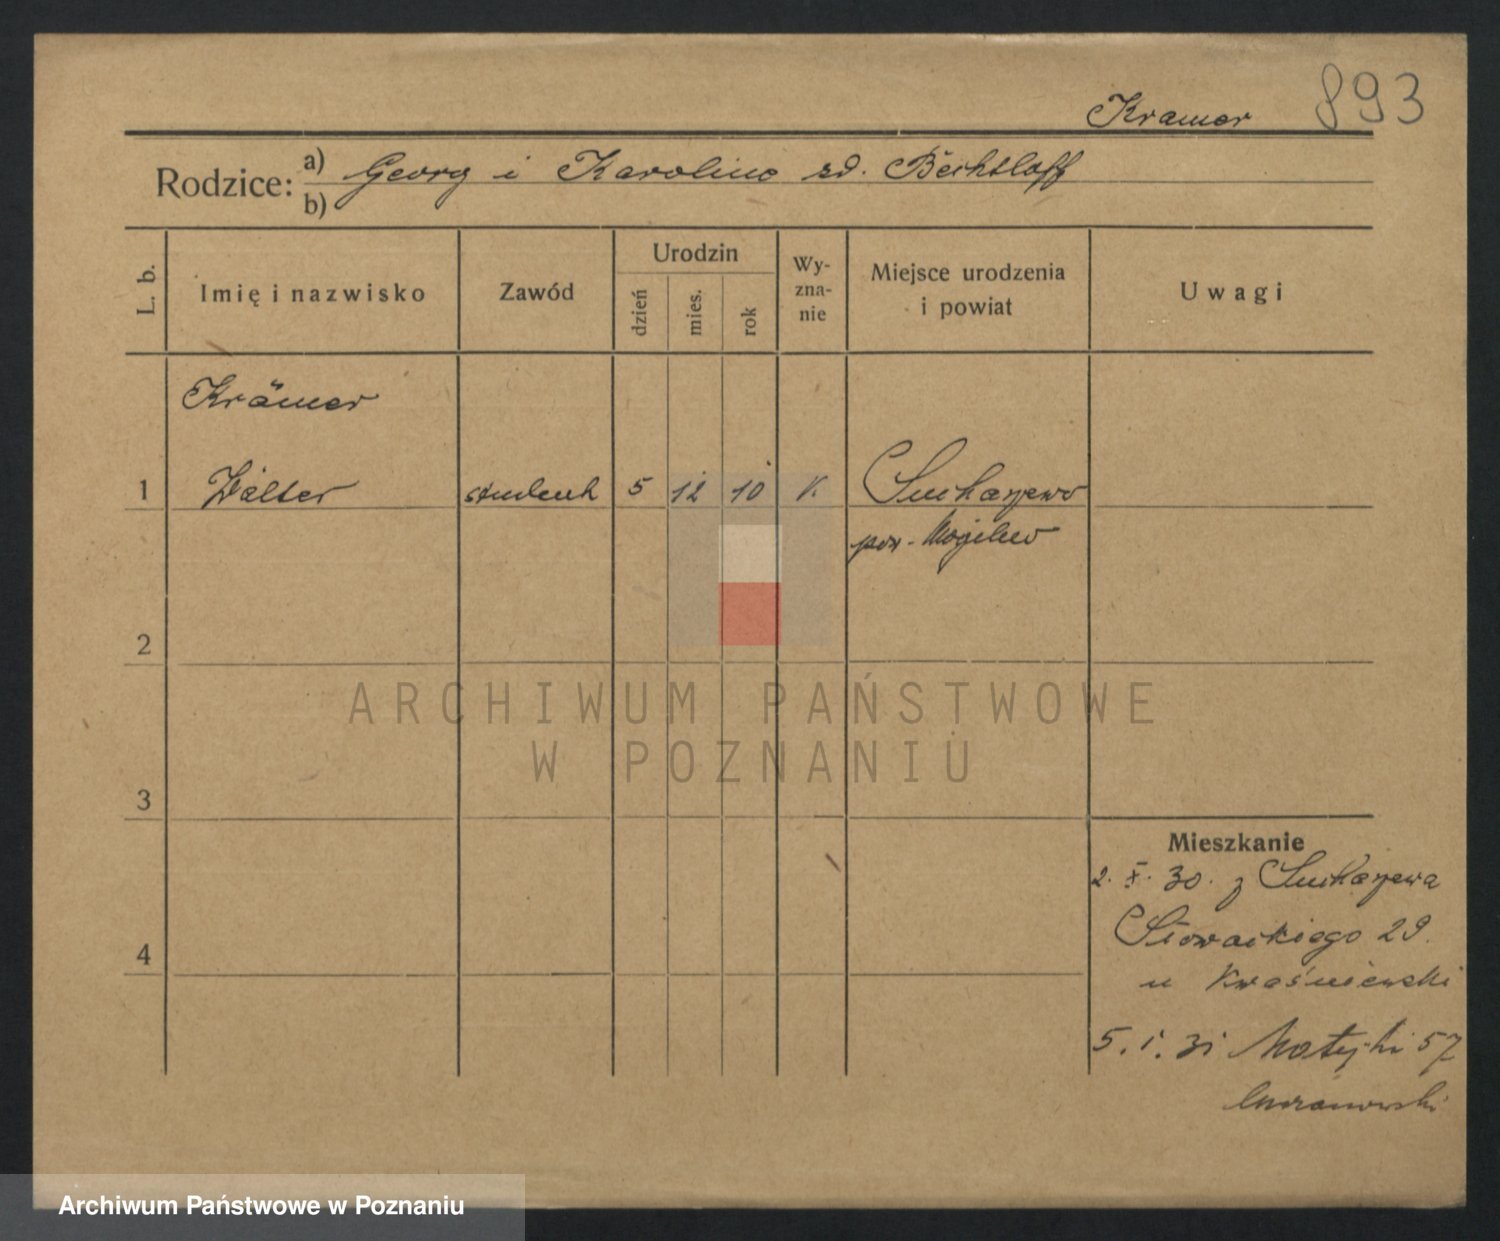 893
Kramer
Rodzice: a) Georg i Karoline zd. Bechtloff
b)
L. b.
Imię i nazwisko
Zawód
Urodzin
dzień
mies.
rok
Wy-
zna-
nie
Miejsce urodzenia
i powiat
Uwagi
Krämer
1 Walter student 5 12 10 K. Sucharzewo
pow. Mogilno
2
3
4
Mieszkanie
2. X. 30. z Sucharzewa
Słowackiego 29.
u Kwaśniewski
5. I. 31 Matejki 57
ARCHIWUM PAŃSTWOWE
W POZNANIU
Archiwum Państwowe w Poznaniu